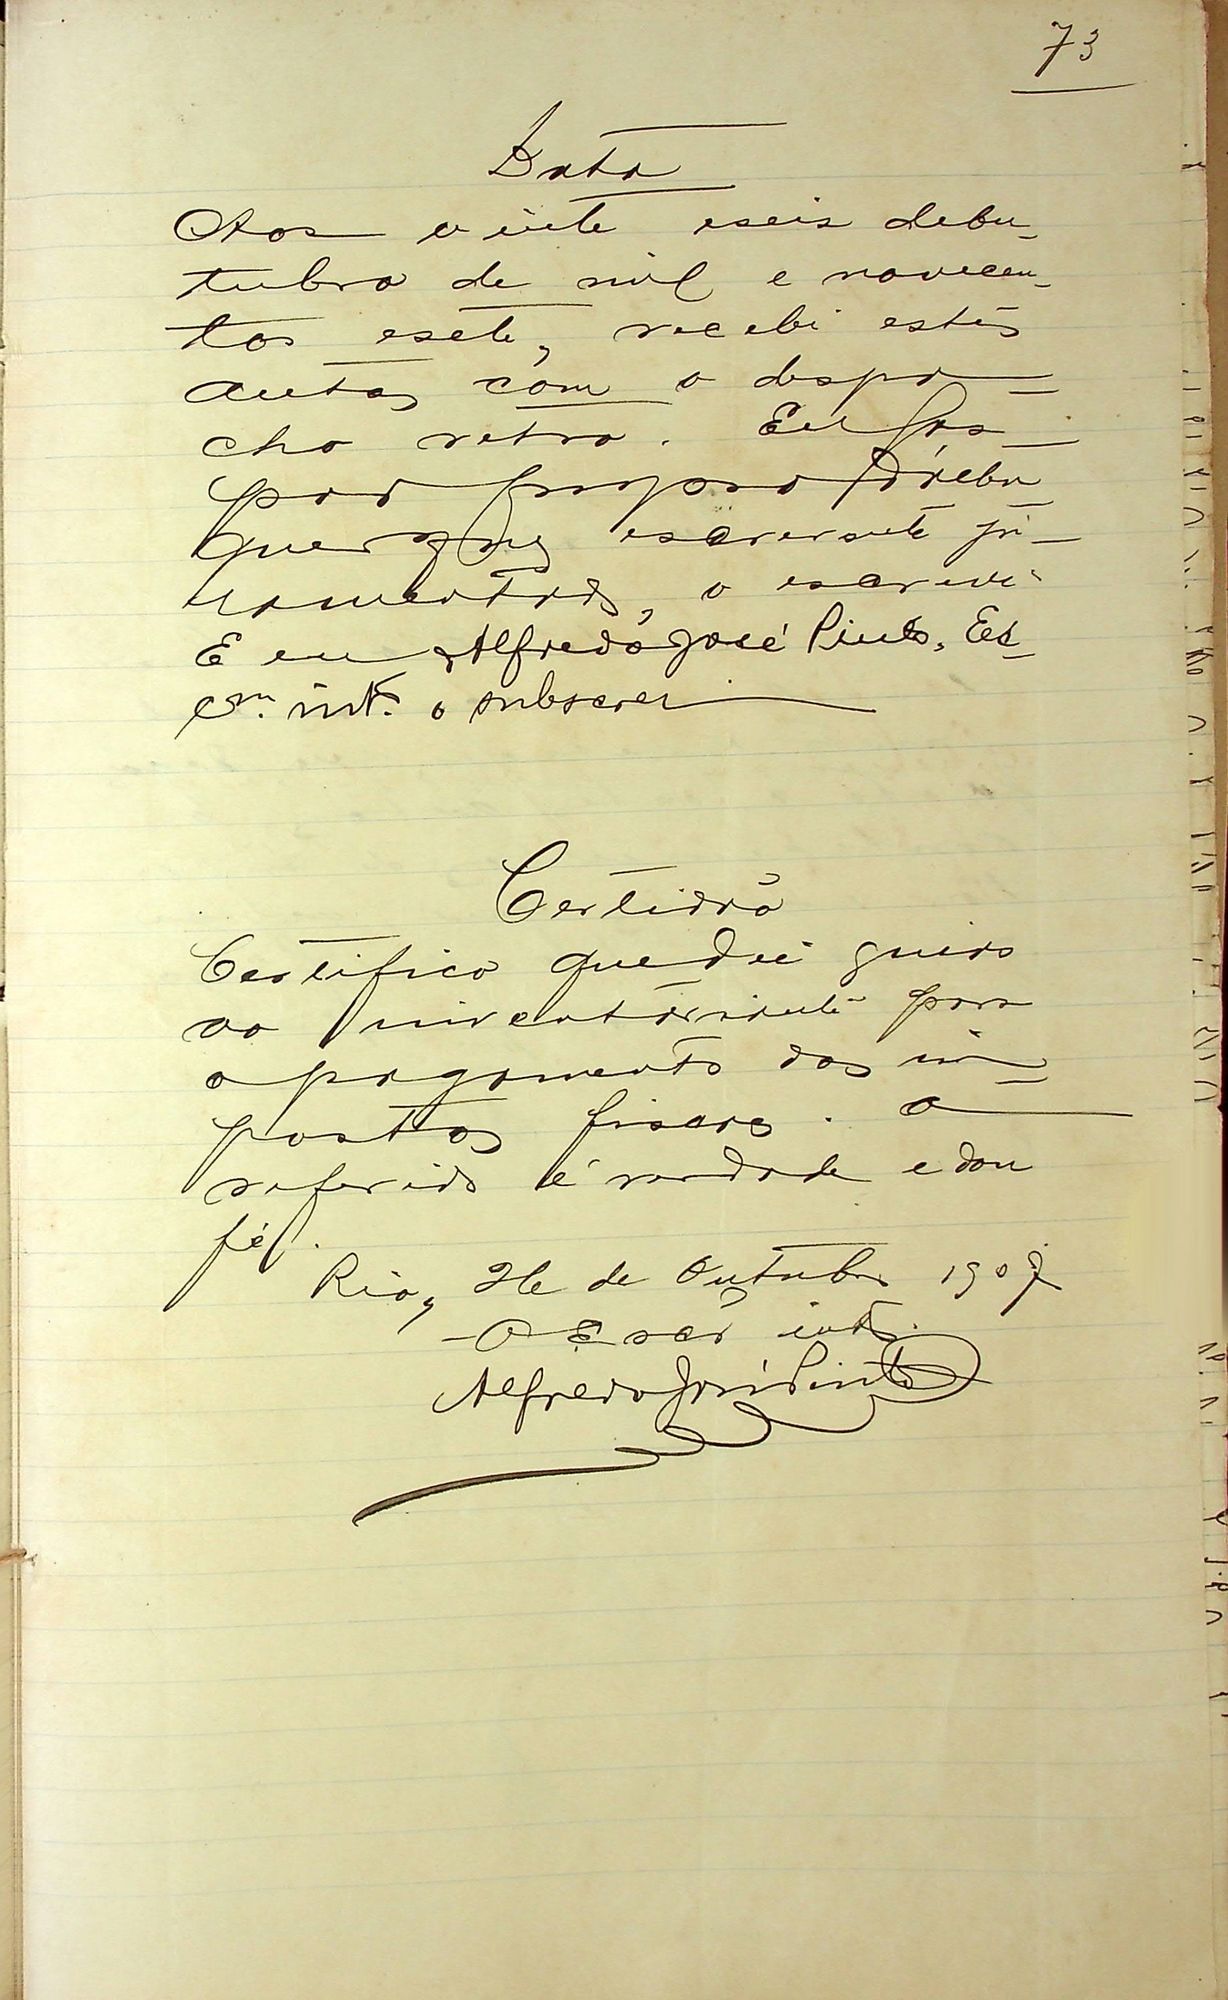 73
Data
Aos vinte e seis de Ou-
tubro de mil e novecen-
tos e sete, recebi estes
autos com o despa-
cho retro. Eu Gas-
par
querque escrevente ju-
ramentado, o escrevi
E eu Alfredo José Pinto, Es-
cm. intº. o subscrevi
Certidão
Certifico que dei guia
ao inventariante para
o pagamento dos im-
postos fiscaes. O
referido é verdade e dou
fé.
Rio, 26 de Outubro 1907
O Escrº intº.
Alfredo José Pinto